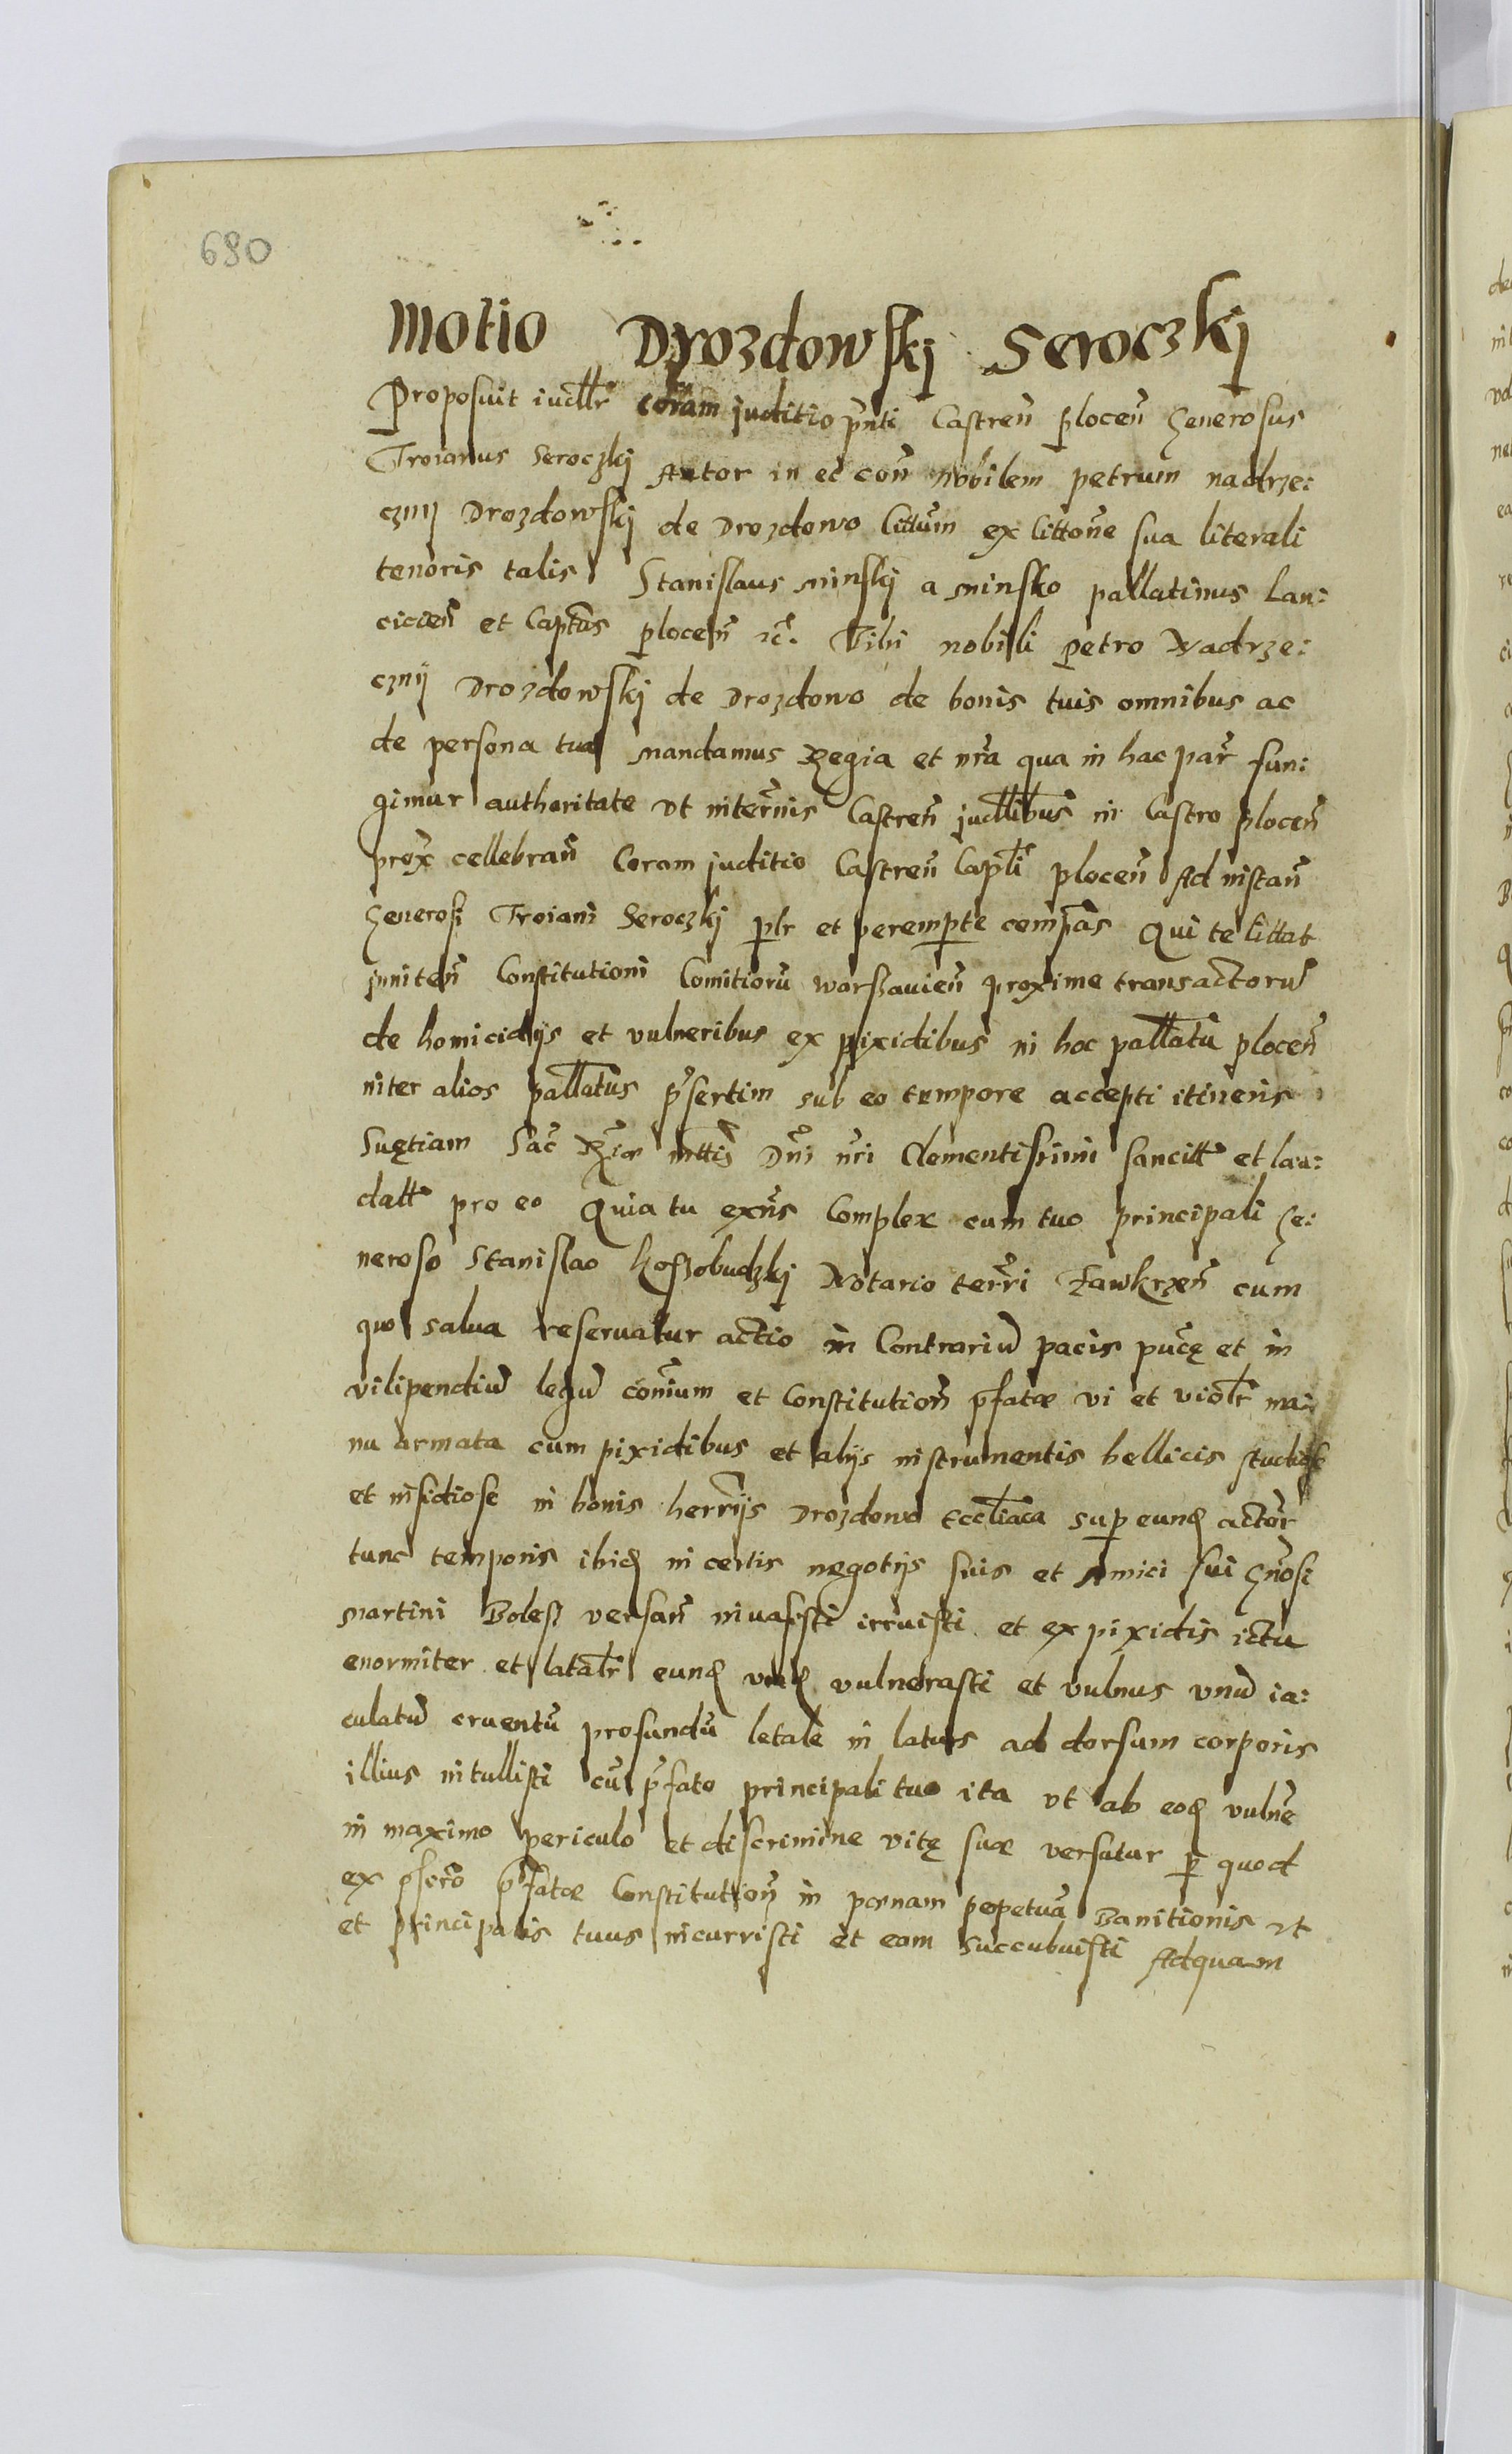 680
Motio Drozdowskj Seroczkj
Proposuit iudlr coram juditio pñti Castreñ plocen Generosus
Troianus Seroczkj Actor in et coñ Nobilem petrum nadrze:
cznij Drozdowskj de Drozdowo Cittum ex Cittone sua literali
tenoris talis Stanislaus minskj a minsko pallatinus Lan:
cicieñ et Captûs ploceñ ꝛc. Tibi nobili petro Nadrze:
cznij Drozdowskj de Drozdowo de bonis tuis omnibus ac
de persona tua mandamus Regia et nra qua in hac par fun:
gimur authoritate vt in termis Castreñ judlibus in Castro ploceñ
prox cellebrañ Coram juditio Castreñ Capli ploceñ Ad instañ
Generosi Troiani Seroczkj plr et perempte compas Qui te Cittat
inniteñ Constitutioni Comitiorũ warszauieñ proxime transactorũ
de homicidijs et vulneribus ex pixidibus in hoc pallatu ploceñ
inter alios pallatus p̃sertim sub eo tempore accepti itineris
Suętiam Sac Rgiæ mttis Dni nri Clementissimi sancitt et lau:
datt pro eo Quia tu exñs Complex cum tuo principali Ge:
neroso Stanislao Koszobudzkj Notario terri Zawkrzeñ cum
quo salua reseruatur actio in Contrariũ pacis pucę et in
vilipendiũ legũ coñium et Constitutioñ p̃fatæ vi et violr ma:
nu armata cum pixidibus et alijs instrumentis bellicis studiose
et insidiose in bonis herrijs Drozdowo Eccliaca sup eund actor
tunc temporis ibid in certis negotijs suis et Amici sui Gnosi
martini Bolesz versañ inuasisti irruisti et ex pixidis ictu
enormiter et latalr eund vulnerasti et vulnus vnũ ia:
culatũ cruentũ profundũ letale in latus ad dorsum corporis
illius intullisti cũ p̃fato principali tuo ita vt ab eod vulne
in maximo periculo et discrimine vitę suæ versatur p quod
ex p̃scro p̃fatæ Constitutioñ in pœnam pepetuã Banitionis vt
et principalis tuus incurristi et eam succubuisti Adquam